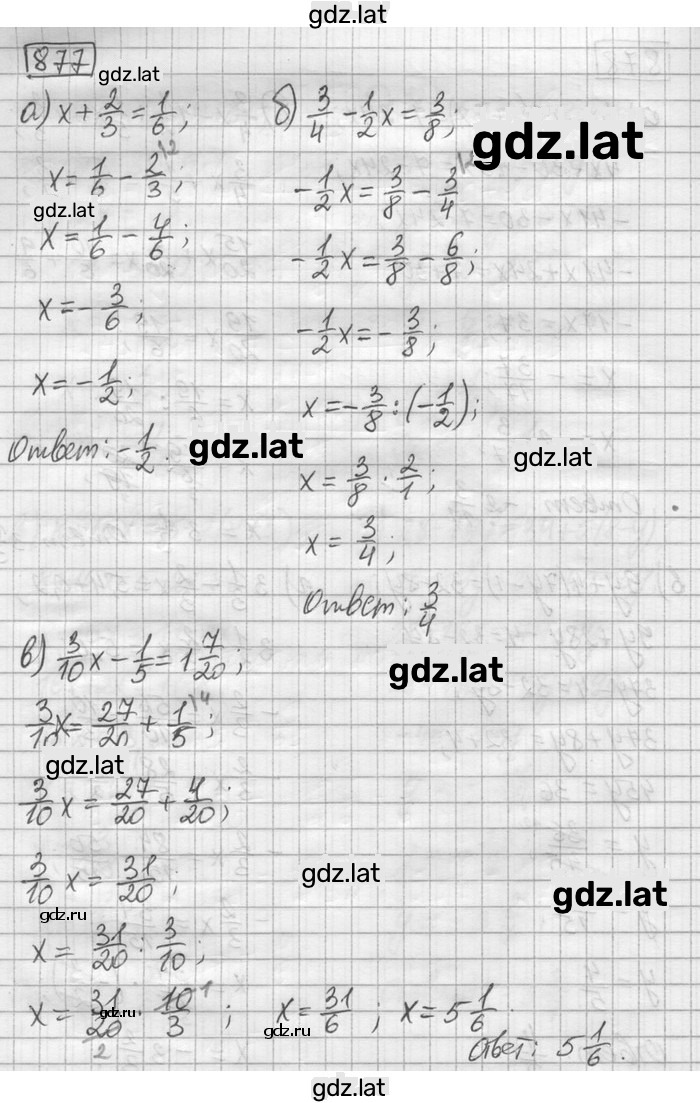 gdz.lat
877
gdz.lat
а) x + 2/3 = 1/6;
x = 1/6 - 2/3 \2;
gdz.lat
x = 1/6 - 4/6;
x = - 3/6;
x = - 1/2;
Ответ: - 1/2.
gdz.lat
б) 3/4 - 1/2 x = 3/8;
gdz.lat
- 1/2 x = 3/8 - 3/4
- 1/2 x = 3/8 - 6/8;
- 1/2 x = - 3/8;
x = - 3/8 : (- 1/2);
gdz.lat
x = 3/8 · 2/1;
x = 3/4;
Ответ: 3/4
gdz.lat
в) 3/10 x - 1/5 = 1 7/20;
3/10 x = 27/20 + 1/5 \4;
gdz.lat
3/10 x = 27/20 + 4/20;
3/10 x = 31/20;
gdz.lat
gdz.lat
gdz.ru
x = 31/20 : 3/10;
x = 31/20 2 · 10 1/3; x = 31/6; x = 5 1/6.
gdz.lat
gdz.ru
Ответ: 5 1/6.
gdz.lat